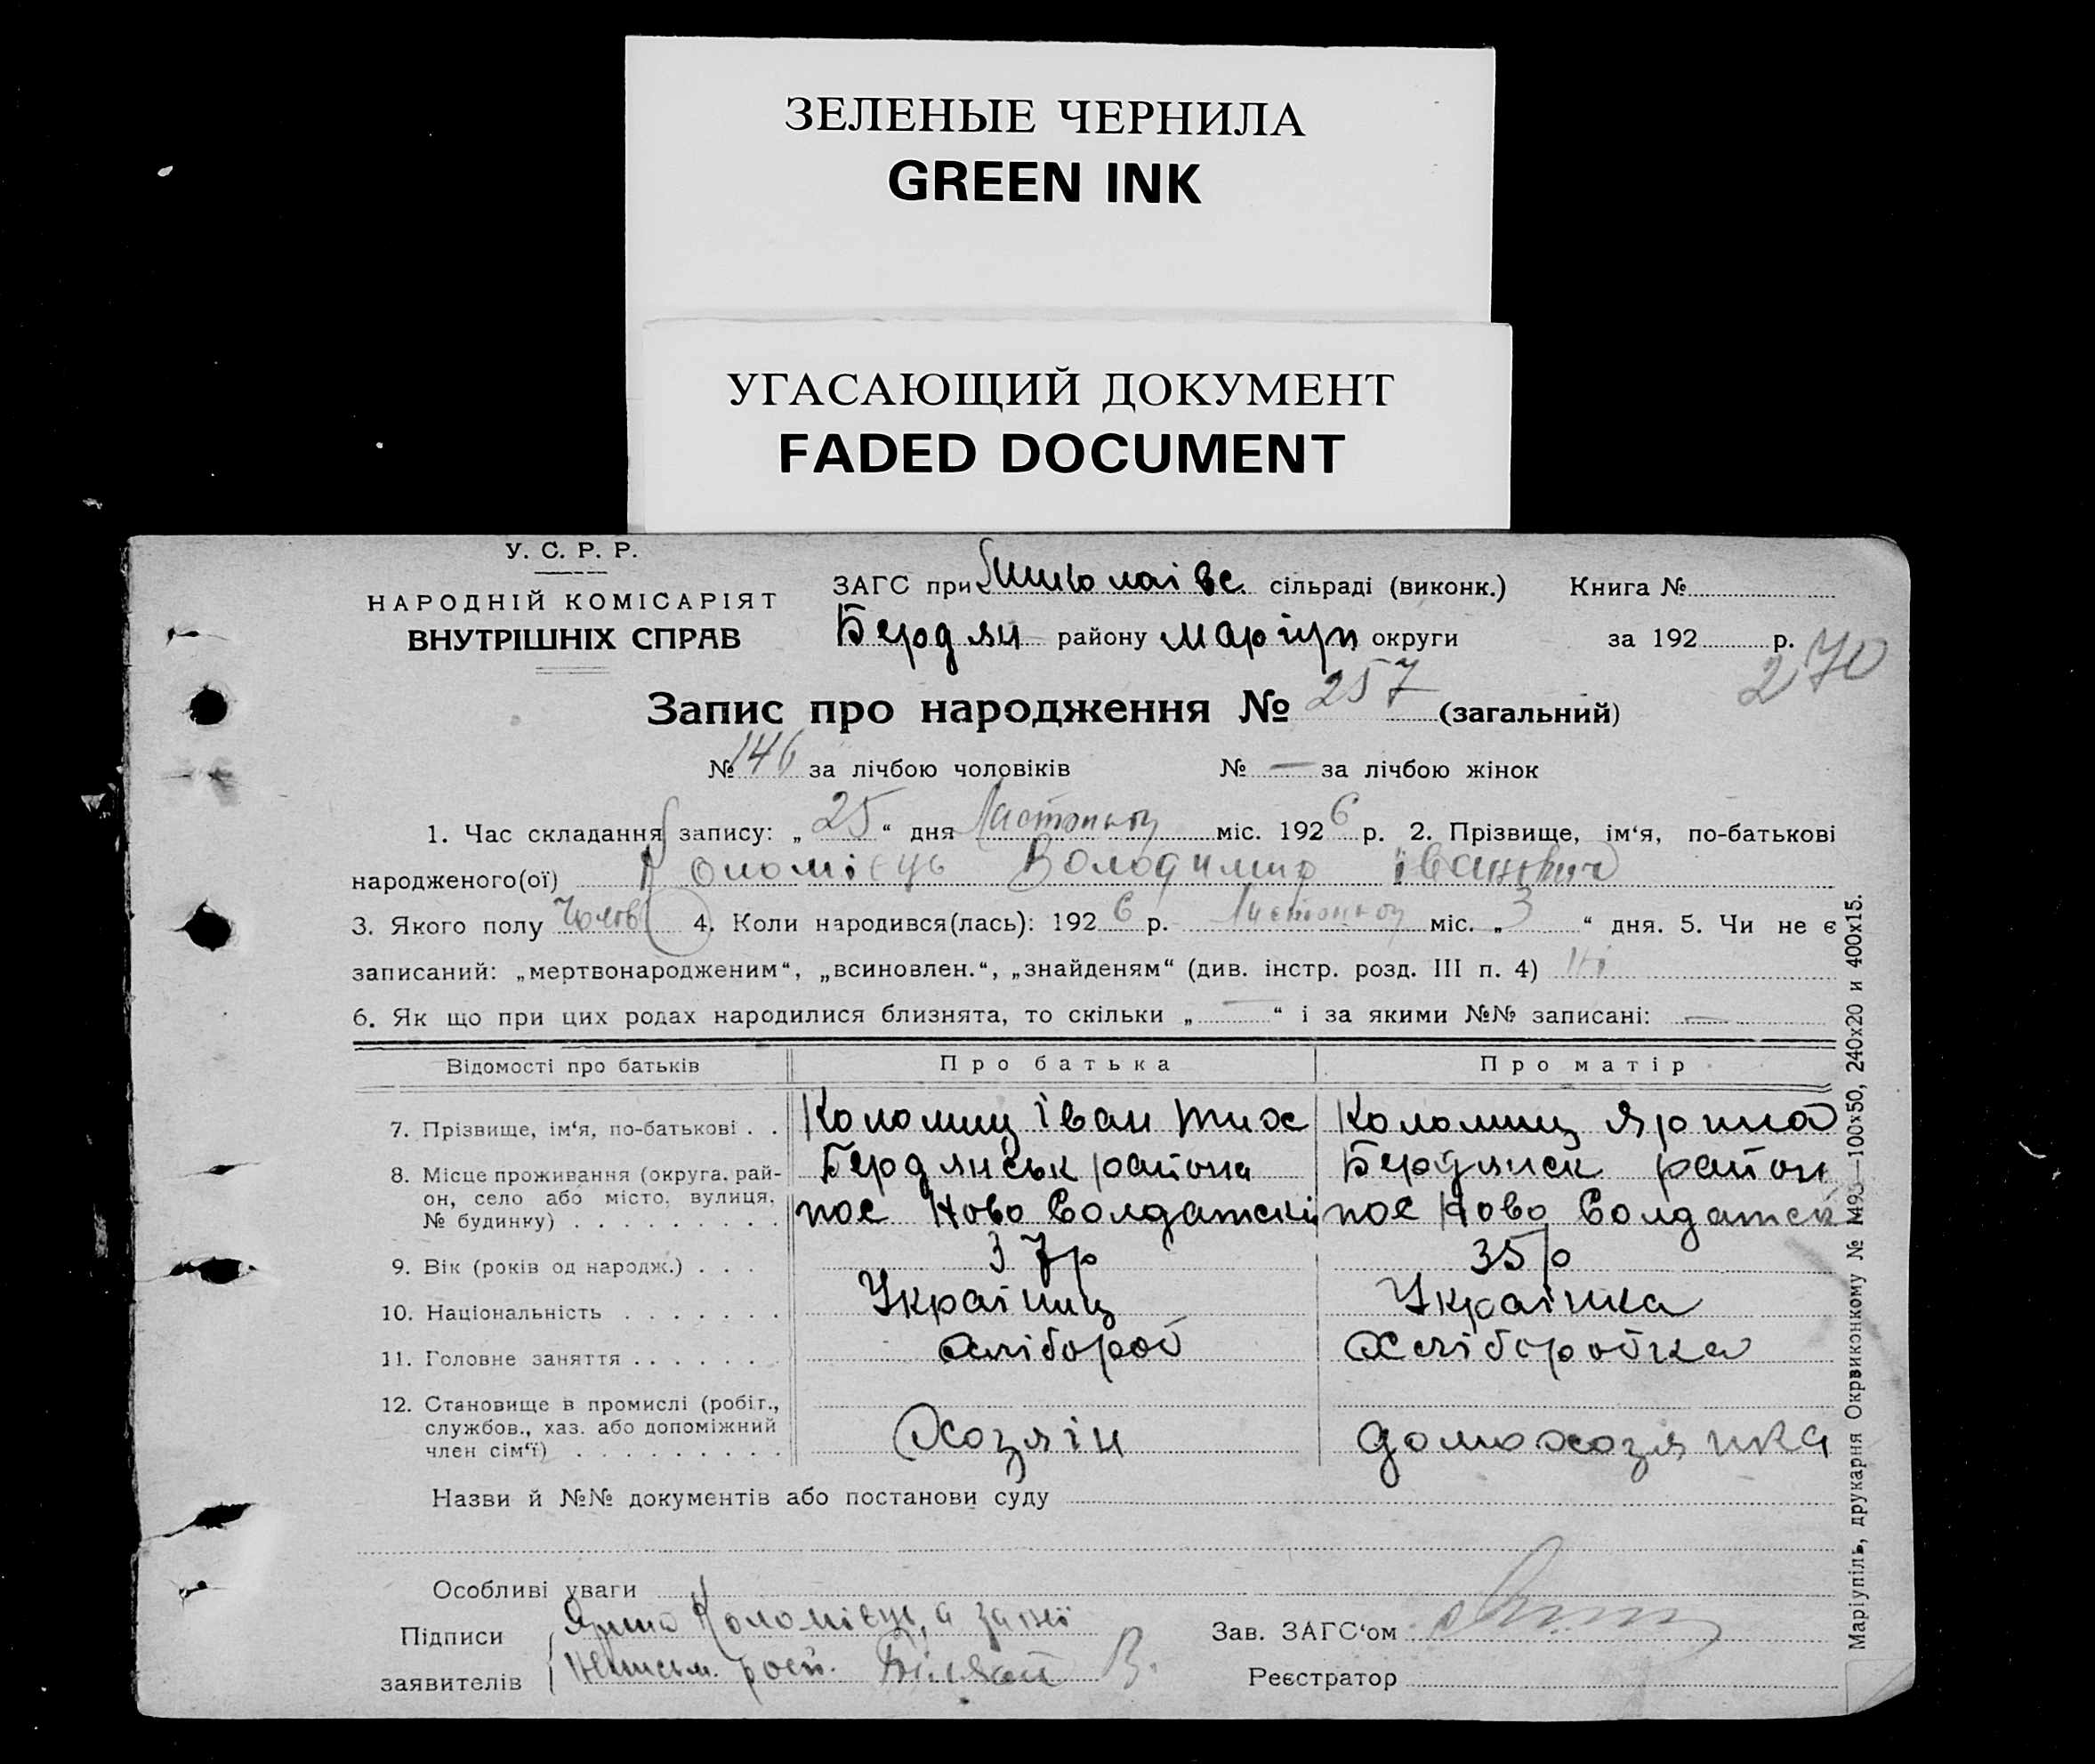 ЗЕЛЕНЫЕ ЧЕРНИЛА
GREEN INK
УГАСАЮЩИЙ ДОКУМЕНТ
FADED DOCUMENT
У. С. Р. Р.
НАРОДНІЙ КОМІСАРІЯТ
ВНУТРІШНІХ СПРАВ
ЗАГС при Миколаівс. сільраді (виконк.) Книга №
Бердян району Маріуп округи за 192 р.
270
Запис про народження № 257 (загальний)
№ 146 за лічбою чоловіків № — за лічбою жінок
1. Час складання запису: „ 25 “ дня Листопад міс. 1926 р. 2. Прізвище, ім‘я, по-батькові
народженого(ої) Коломієць Володимир Іванович
3. Якого полу Чолов 4. Коли народився(лась): 1926 р. Листопад міс. „ 3 “ дня. 5. Чи не є
записаний: „мертвонародженим“, „всиновлен.“, „знайденям“ (див. інстр. розд. III п. 4) Ні
6. Як що при цих родах народилися близнята, то скільки „ — “ і за якими №№ записані: —
Відомості про батьків Про батька Про матір
7. Прізвище, ім‘я, по-батькові . . Коломиц Іван Тих Коломиц Ярина
8. Місце проживання (округа, рай- Бердянськ района Бердянск район
он, село або місто, вулиця, пос Ново Солдатскі пос Ново Солдатск
№ будинку) . . . . . . . . .
9. Вік (років од народж.) . . . 37р 35р
10. Національність . . . . . . . Украіниц Украінка
11. Головне заняття . . . . . . . хлібороб Хліборобка
12. Становище в промислі (робіт.,
службов., хаз. або допоміжний Хозяін домохозяика
член сім‘ї) . . . . . . . . .
Назви й №№ документів або постанови суду
Особливі уваги
Підписи Ярина Коломієць, а за неї
заявителів неписьм. росп. В.
Зав. ЗАГС‘ом
Реєстратор
Маріупіль, друкарня Окрвиконкому № 1493—100х50, 240х20 и 400х15.